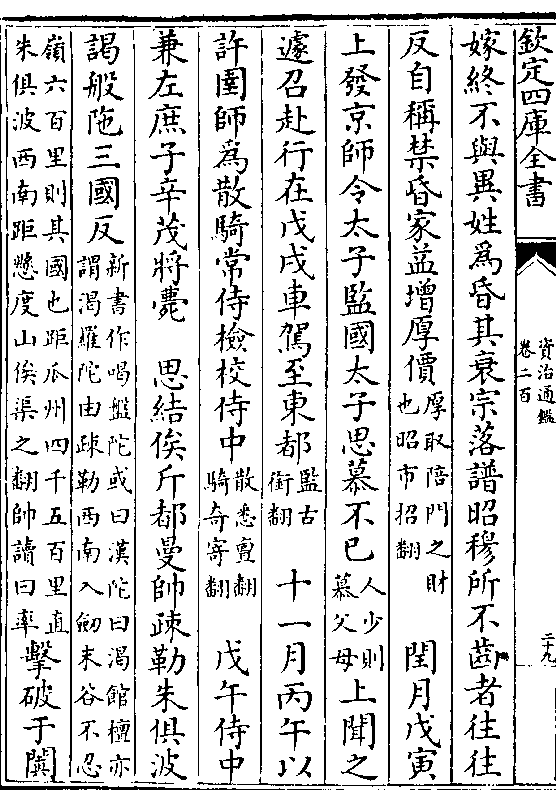 欽定四庫全書
資治通鑑
卷二百
二十九
嫁終不與異姓爲昏其衰宗落譜昭穆所不齒者往往
反自稱禁昏家益增厚價厚取陪門之財
也昭市招翻
閏月戊寅
上發京師令太子監國太子思慕不已人少則
慕父母
上聞之
遽召赴行在戊戌車駕至東都監古
銜翻
十一月丙午以
許圉師爲散騎常侍檢校侍中散悉亶翻
騎奇寄翻
戊午侍中
兼左庶子辛茂將薨 思結俟斤都曼帥疎勒朱俱波
謁般陁三國反新書作喝盤陀或曰漢陀曰渴館檀亦
謂渴羅陀由疎勒西南入劒末谷不忍
嶺六百里則其國也距瓜州四千五百里直
朱俱波西南距懸度山俟渠之翻帥讀曰率
擊破于闐